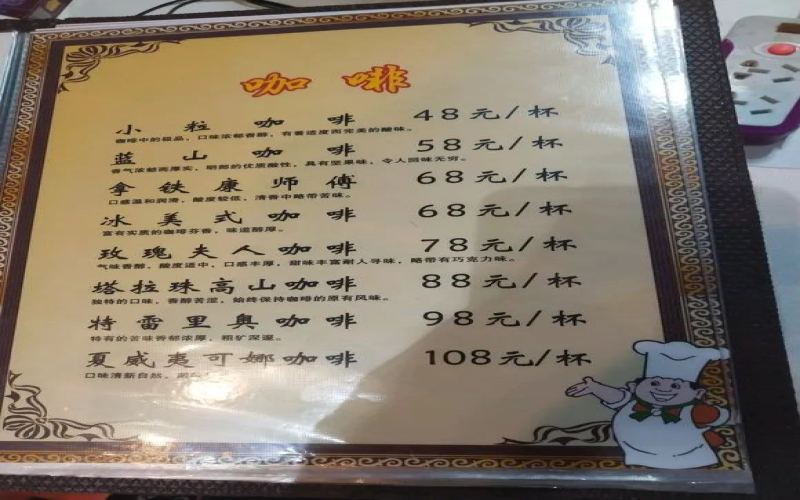 咖啡
小粒咖啡 48元/杯
咖啡中的极品，口味浓郁香醇，有着适度而完美的酸味。
蓝山咖啡 58元/杯
香气浓郁而厚实，明朗的优质酸性，具有坚果味，令人回味无穷。
拿铁康师傅 68元/杯
口感温和润滑，酸度较低，清香中略带苦味。
冰美式咖啡 68元/杯
富有实质的咖啡芬香，味道醇厚。
玫瑰夫人咖啡 78元/杯
气味香醇，酸度适中，口感丰厚，甜味丰富耐人寻味，略带有巧克力味。
塔拉珠高山咖啡 88元/杯
独特的口味，香醇苦涩，始终保持咖啡的原有风味。
特雷里奥咖啡 98元/杯
特有的苦味香郁浓厚，粗犷深邃。
夏威夷可娜咖啡 108元/杯
口味清新自然，